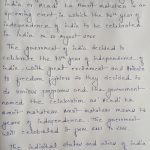 India is Azadi ka Amrit mahotsav is an
upcoming event in which the 75th year of
independence of India to be celebrated
in India on 15 august 2022
The government of India decided to
celebrate the 75th year of independence of
India with great excitement and tribute
to freedom fighters so they decided to
do various programs and the government
named the celebration as Azadi ka
Amrit mahotsav Amrit mahotsav means 75
years of independence. The government
will celebrated it from 2021 to 2022
The individual states and cities of India